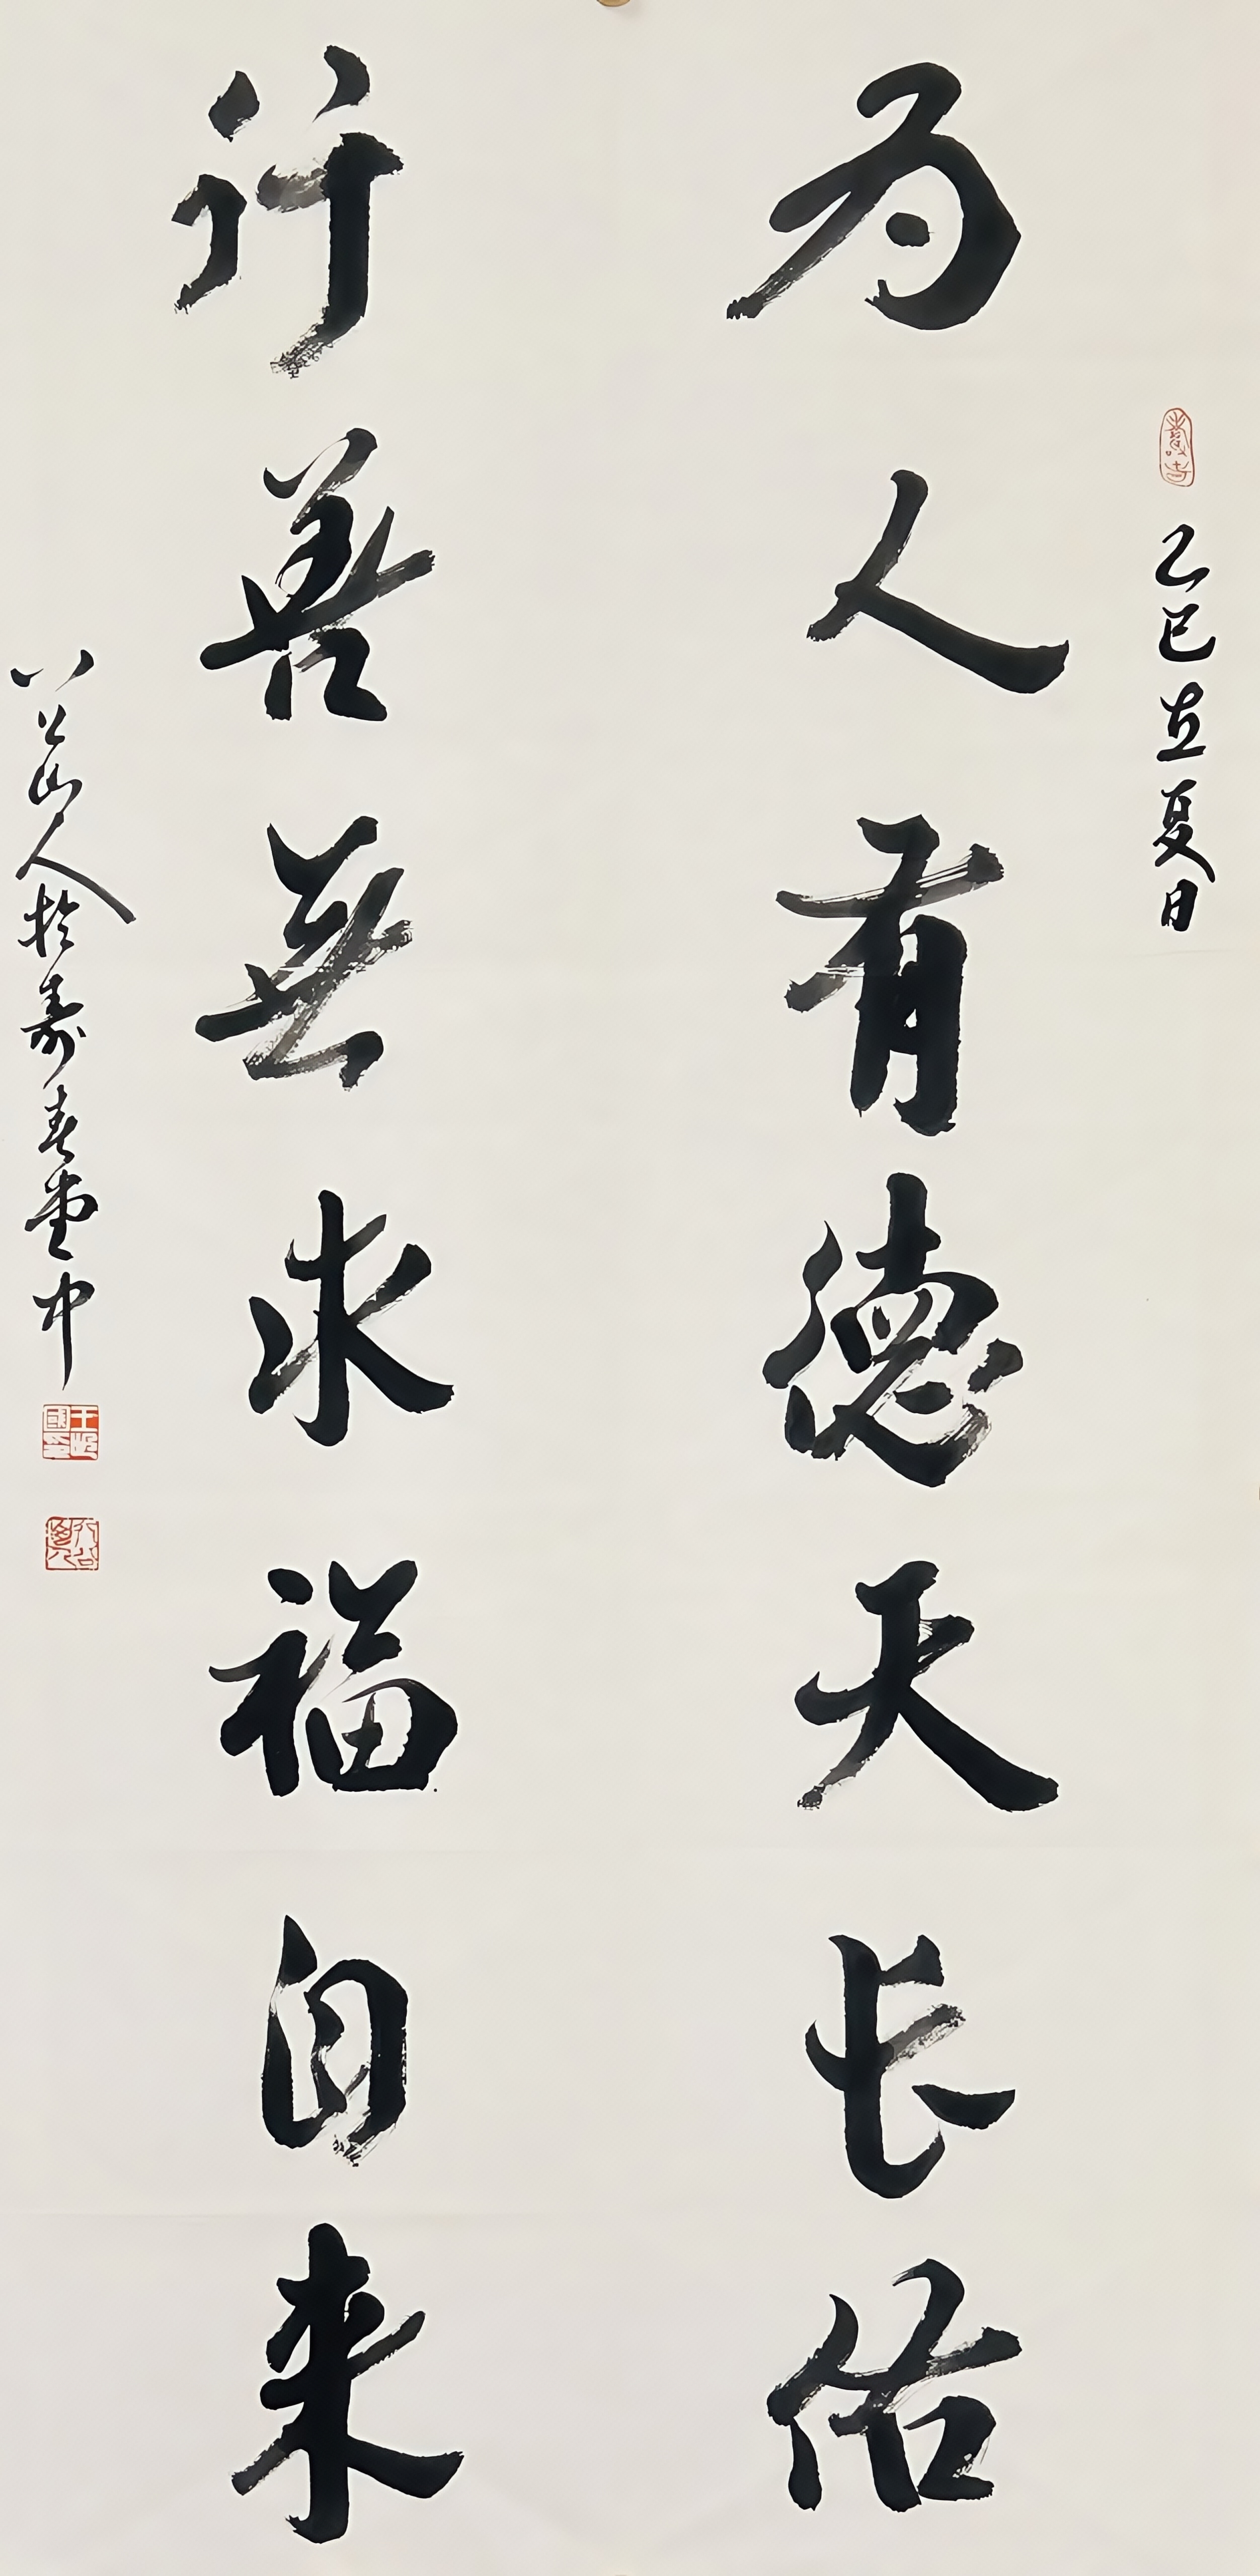 乙巳立夏日
为人有德天长佑
行善無求福自来
八公山人於寿春堂中